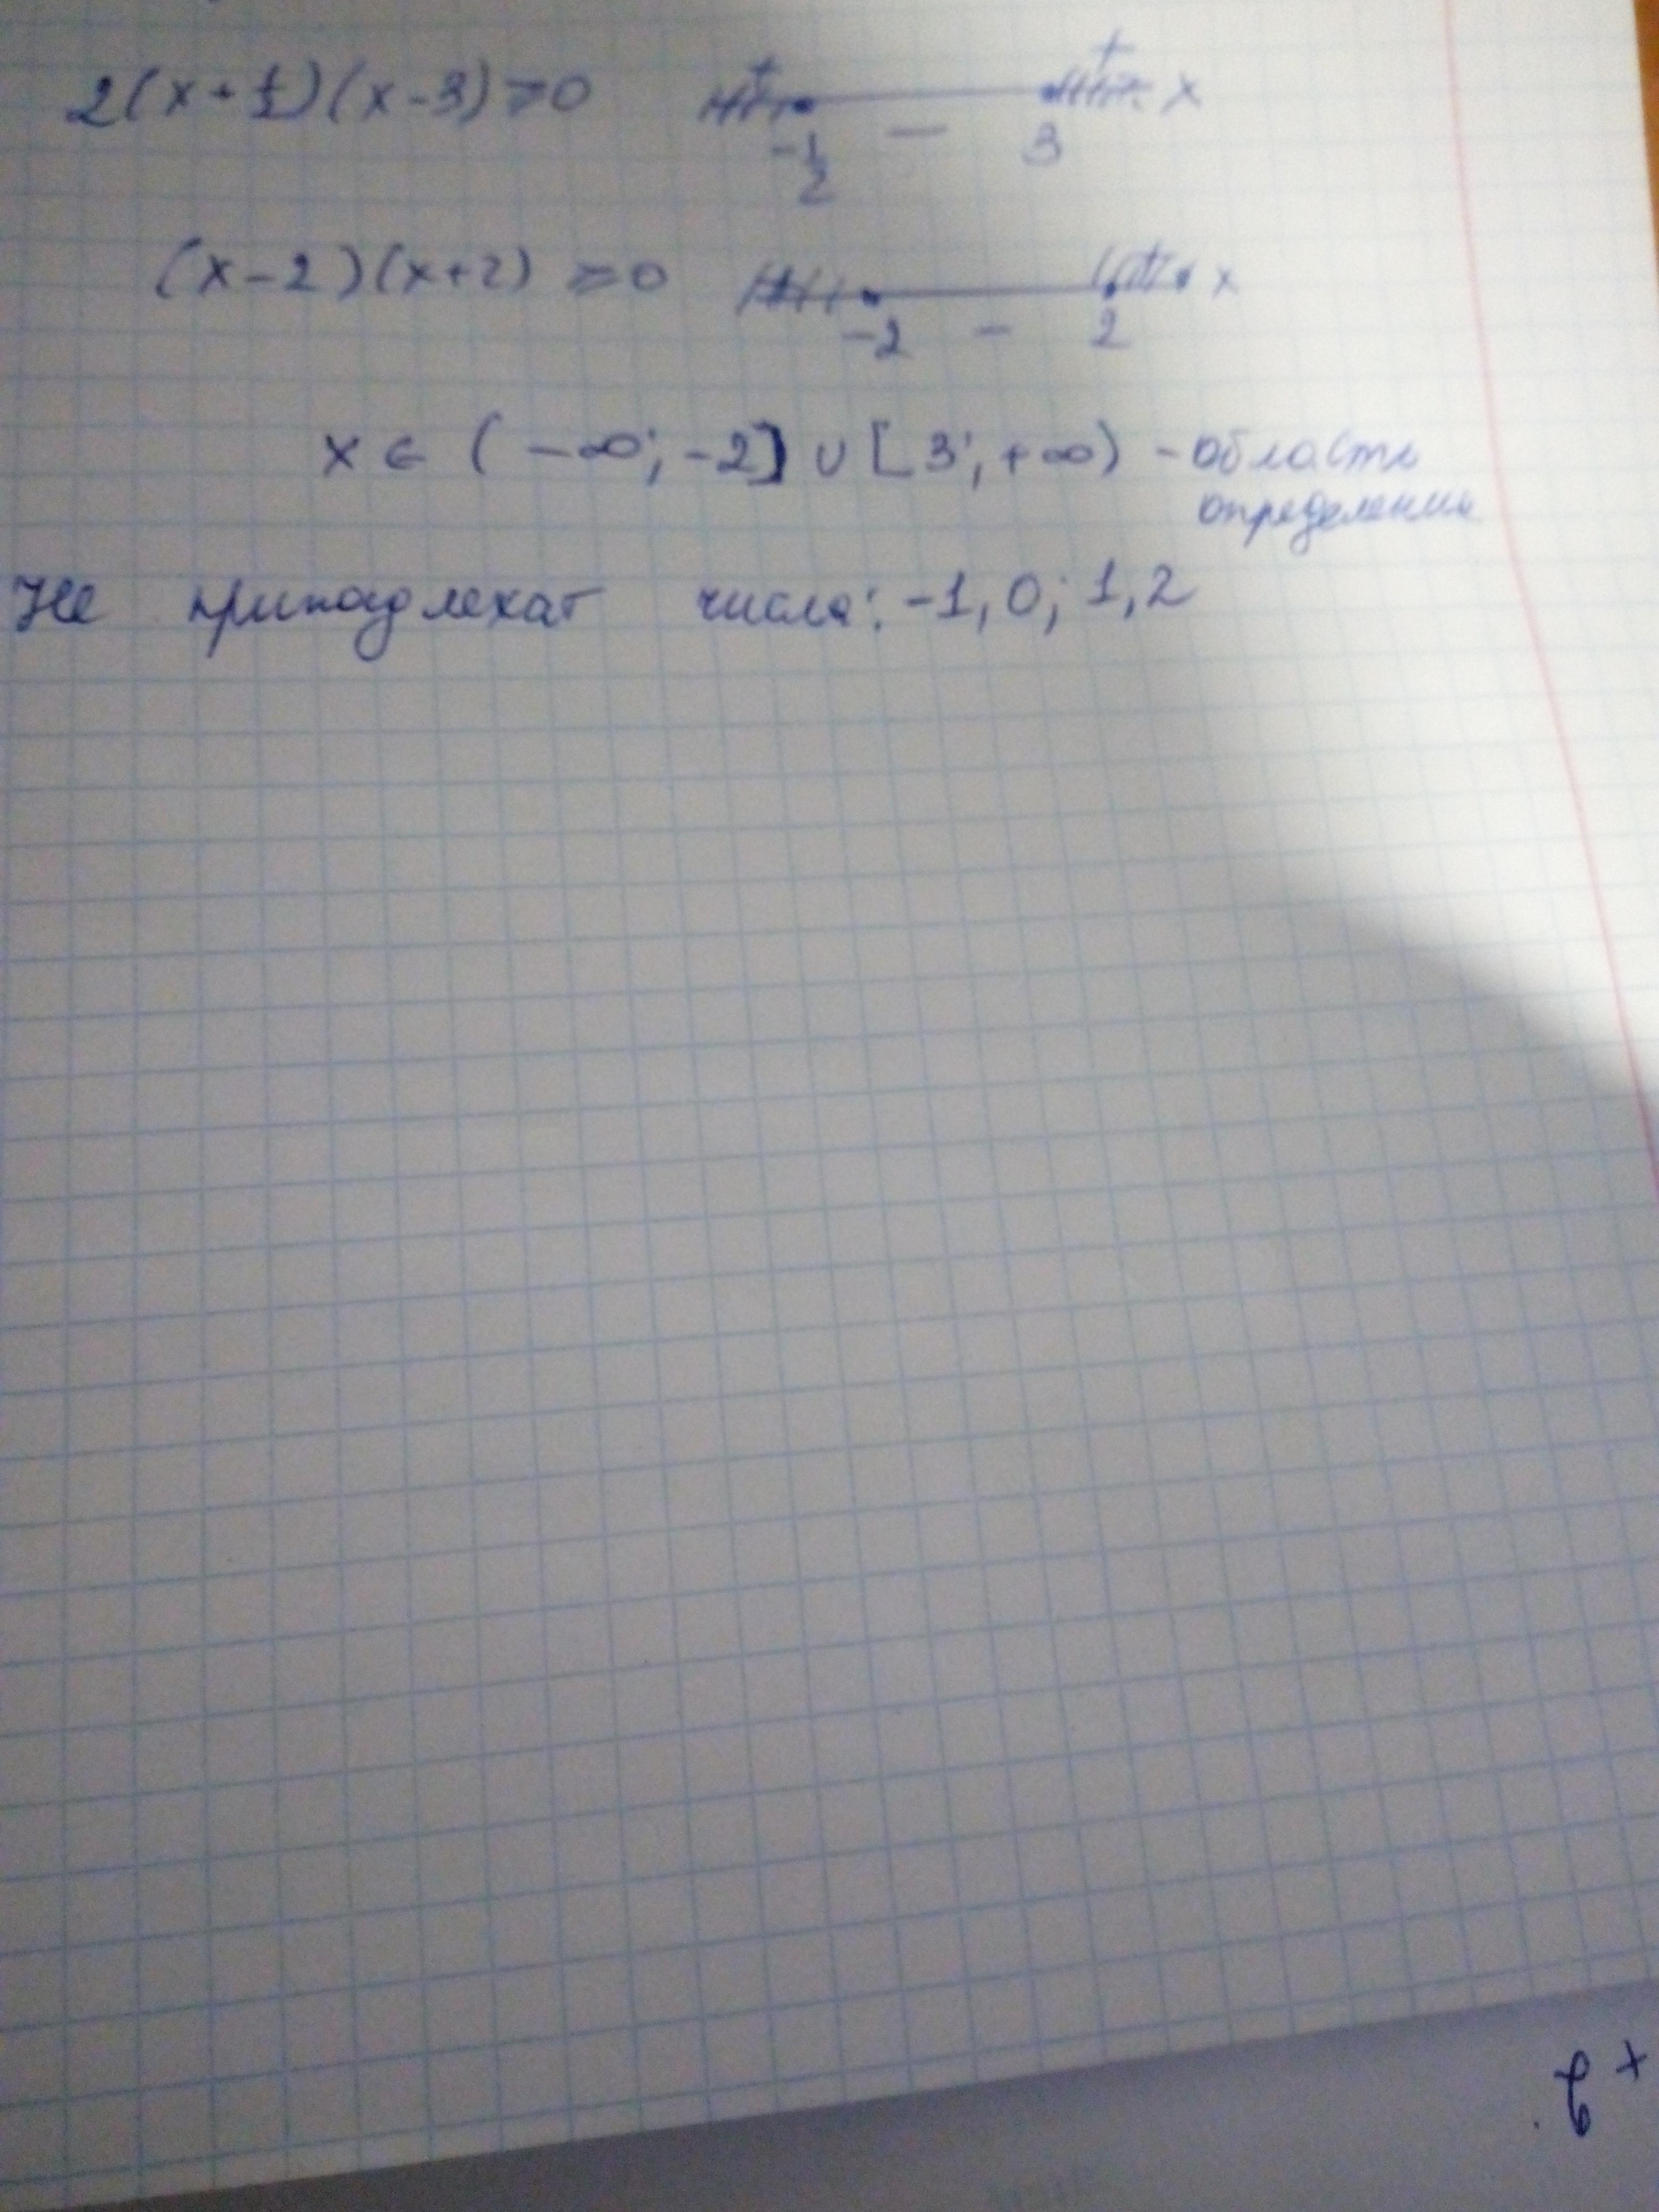 2(x+1)(x-3)⩾0 + + x
-1/2 — 3
(x-2)(x+2) ⩾0 x
-2 - 2
x ∈ (-∞; -2] ∪ [3; +∞) - область
определения
Не принадлежат числа: -1, 0; 1, 2